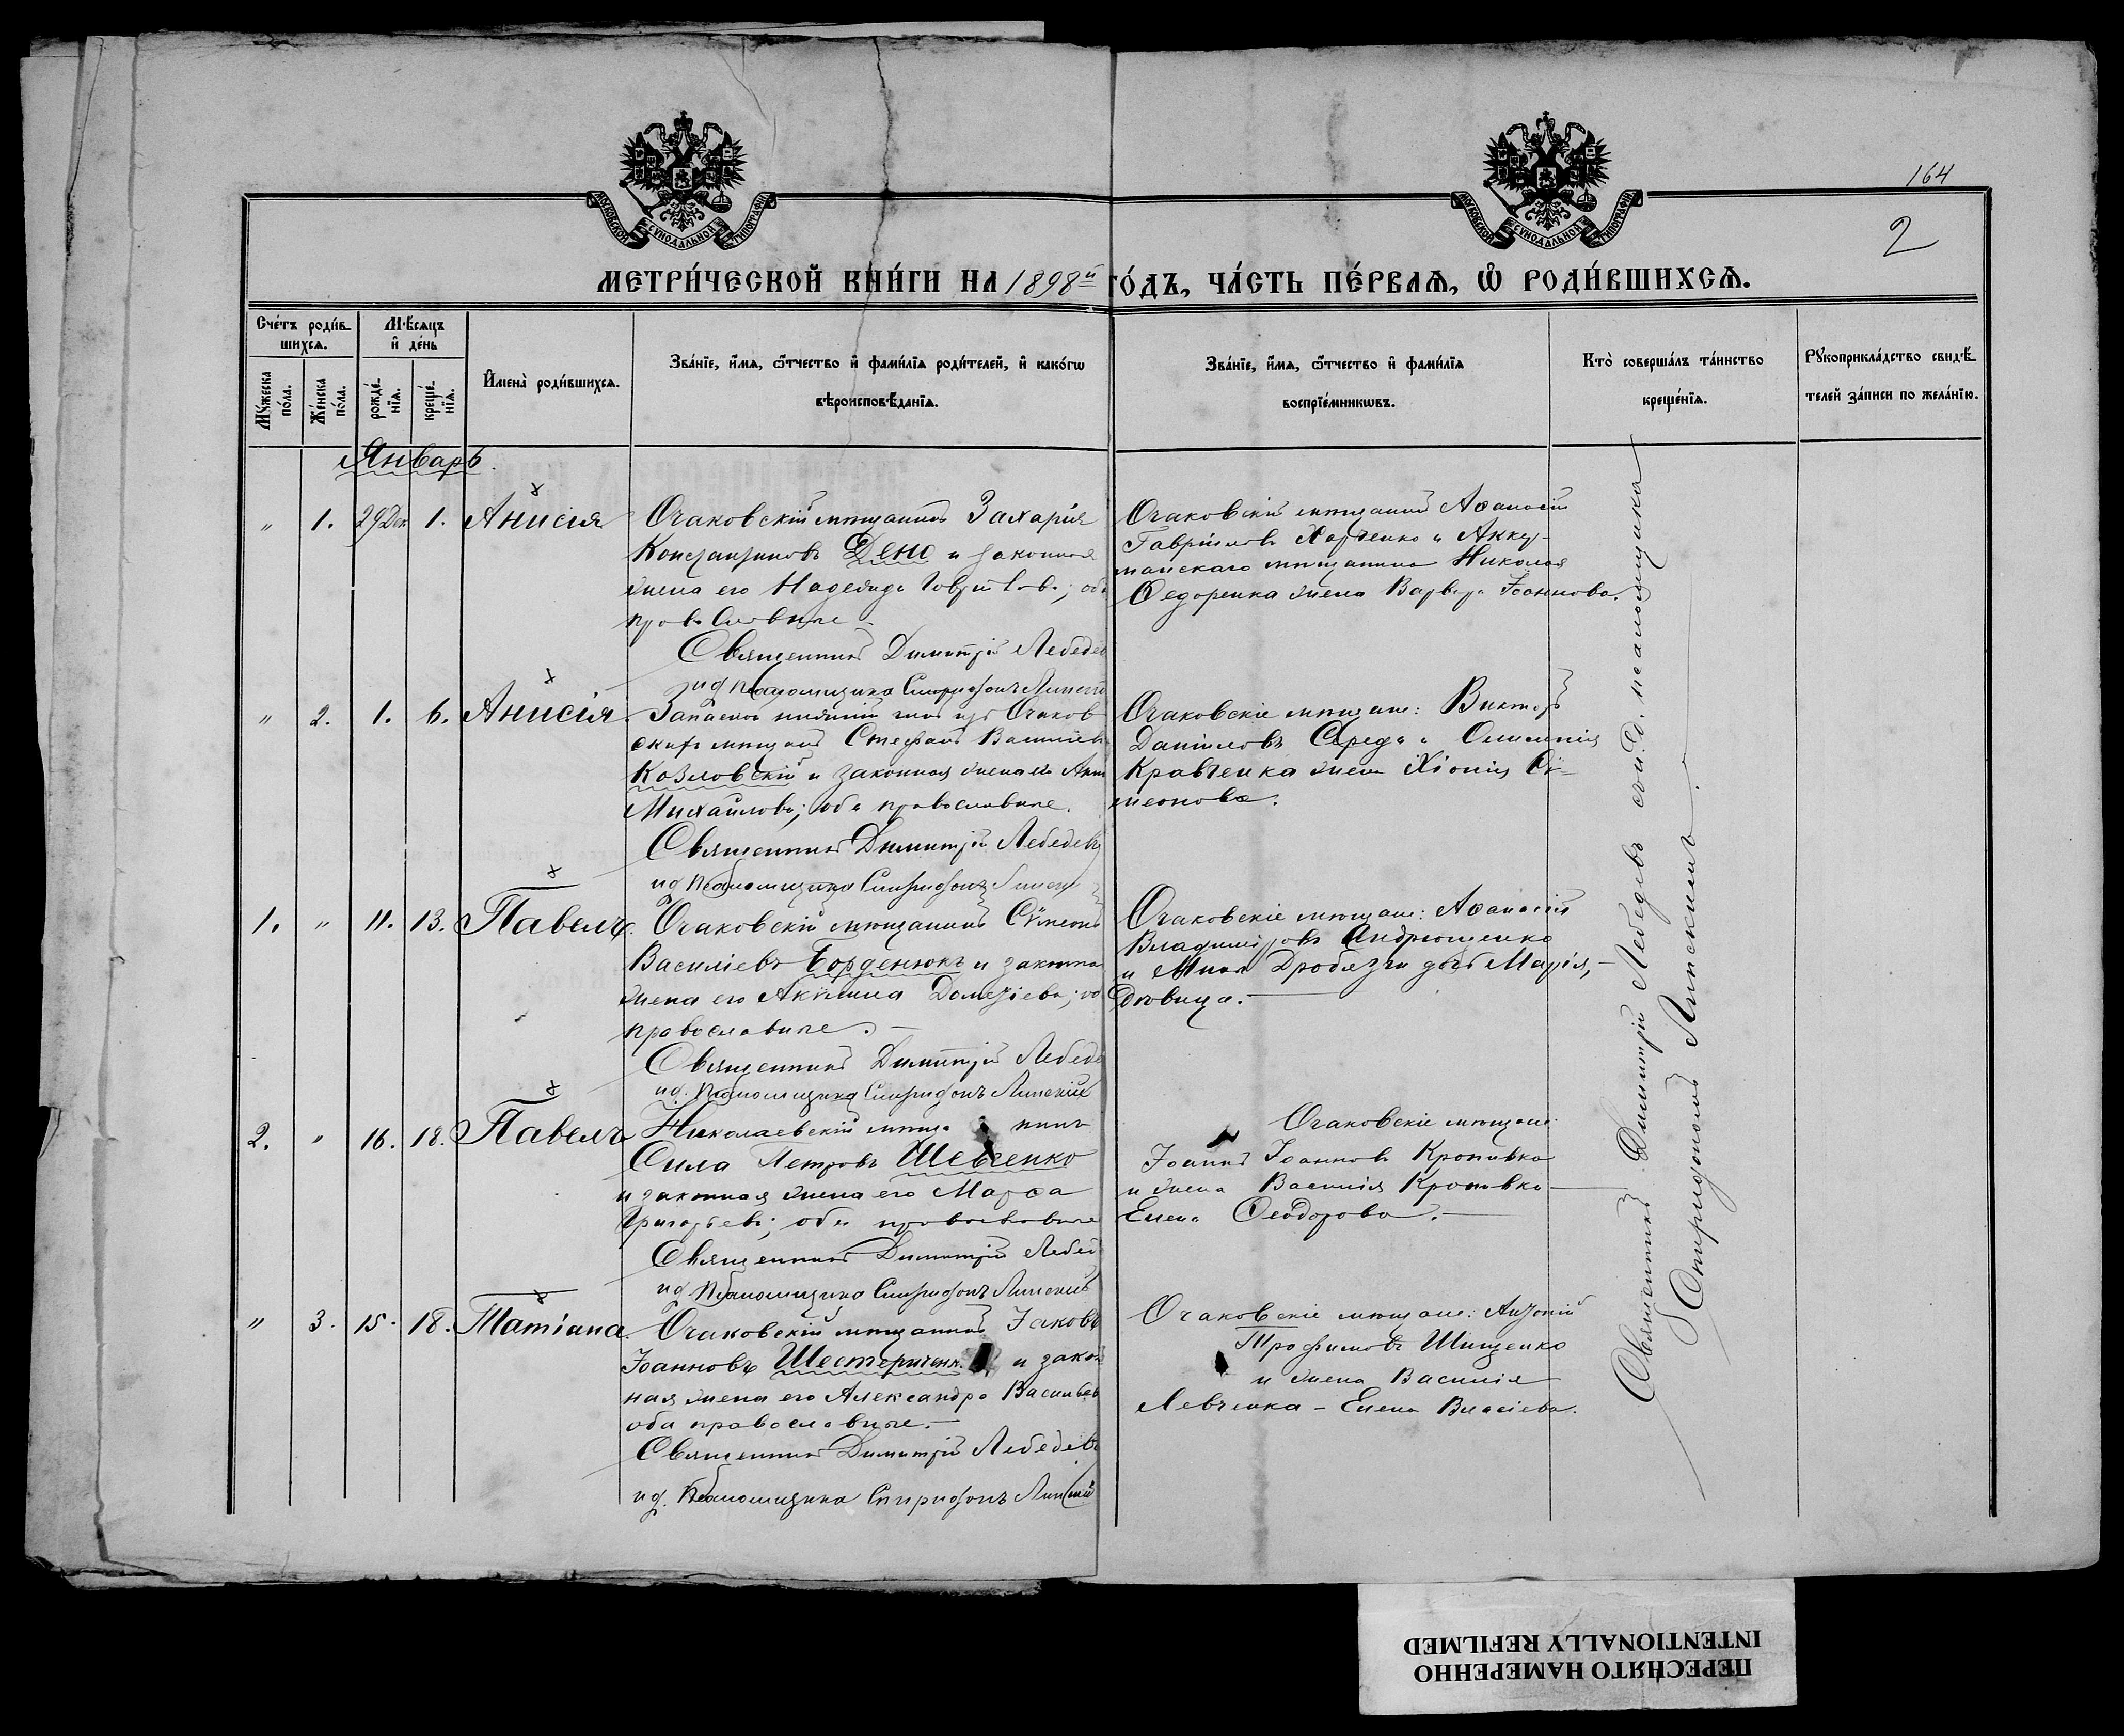 164
2
МОСКОВСКОЙ СУНОДАЛЬНОЙ ТИПОГРАФІИ
МОСКОВСКОЙ СУНОДАЛЬНОЙ ТИПОГРАФІИ
МЕТРИ́ЧЕСКОЙ КНИ́ГИ НА 1898й ГО́ДЪ, ЧА́СТЬ ПЕ́РВАѦ, Ѡ҆ РОДИ́ВШИХСѦ.
Сче́тъ роди́в-
шихсѧ.
Мꙋ́жеска по́ла.
Же́нска по́ла.
Мѣ́сѧцъ и҆ де́нь
рожде́-
нїѧ.
креще́-
нїѧ.
И҆мена̀ роди́вшихсѧ.
Зва́нїе, и҆́мѧ, ѻ҆́тчество и҆ фами́лїѧ роди́телей, и҆ како́гѡ
вѣроисповѣ́данїѧ.
Зва́нїе, и҆́мѧ, ѻ҆́тчество и҆ фами́лїѧ
воспрїе́мникѡвъ.
Кто̀ соверша́лъ та́инство
креще́нїѧ.
Рꙋкоприкла́дство свидѣ́-
телей за́писи по жела́нїю.
Январь.
" 1. 29 Дек. 1. Анисія
Очаковскій мѣщанинъ Захарія
Константиновъ Денс и законная
жена его Надежда; оба
православные.
Священникъ Димитрій Лебедев
и д псаломщика Спиридонъ Липскій
Очаковскій мѣщанинъ Аѳанасій
Гавріиловъ Харченко и Аккер-
манскаго мѣщанина Николая
Ѳедоренка жена Варвара Іоаннова.
" 2. 1. 6. Анисія
Запасной нижній чинъ изъ Очаков
скихъ мѣщанъ Стефанъ Василіев
Козловскій и законная жена его Анна
Михаилова; оба православные.
Священникъ Димитрій Лебедевъ
и д псаломщика Спиридонъ Липскій
Очаковскіе мѣщане: Викторъ
Даніиловъ Середа и
Кравченка жена Хіонія Сѵ-
меонова.
1. " 11. 13. Павелъ.
Очаковскій мѣщанинъ Сѵмеонъ
Василіевъ Борденюкъ и законная
жена его Акилина Дометіева; об
православные. —
Священникъ Димитрій Лебеде
и д. псаломщика Спиридонъ Липскій
Очаковскіе мѣщане: Аѳанасій
Владиміровъ Андрющенко
и Дробязги дочь Марія, -
дѣвица. —
2. " 16. 18. Павелъ
Николаевскій мѣща нинъ
Сила Петровъ Шевченко
и законная жена его Марѳа
Григорьева; оба православные
Священникъ Димитрій Лебед
и д псаломщика Спиридонъ Липскій
Очаковскіе мѣщане:
Іоаннъ Іоанновъ Кропивка
и жена Василія Кропивки
Елена Ѳеодорова. —
" 3. 15. 18. Татіана.
Очаковскій мѣщанинъ Іаковъ
Іоанновъ Шестериченк и закон
ная жена его Александра Васильев
оба православные. —
Священникъ Димитрій Лебедевъ
и д. псаломщика Спиридонъ Липскій
Очаковскіе мѣщане: Антоній
Трофимовъ Шищенко
и жена Василія
Левченка - Елена Власіева.
Священникъ Димитрій Лебедевъ съ и. д. псаломщика
Спиридономъ Липскимъ.
ПЕРЕСНЯТО НАМЕРЕННО
INTENTIONALLY REFILMED